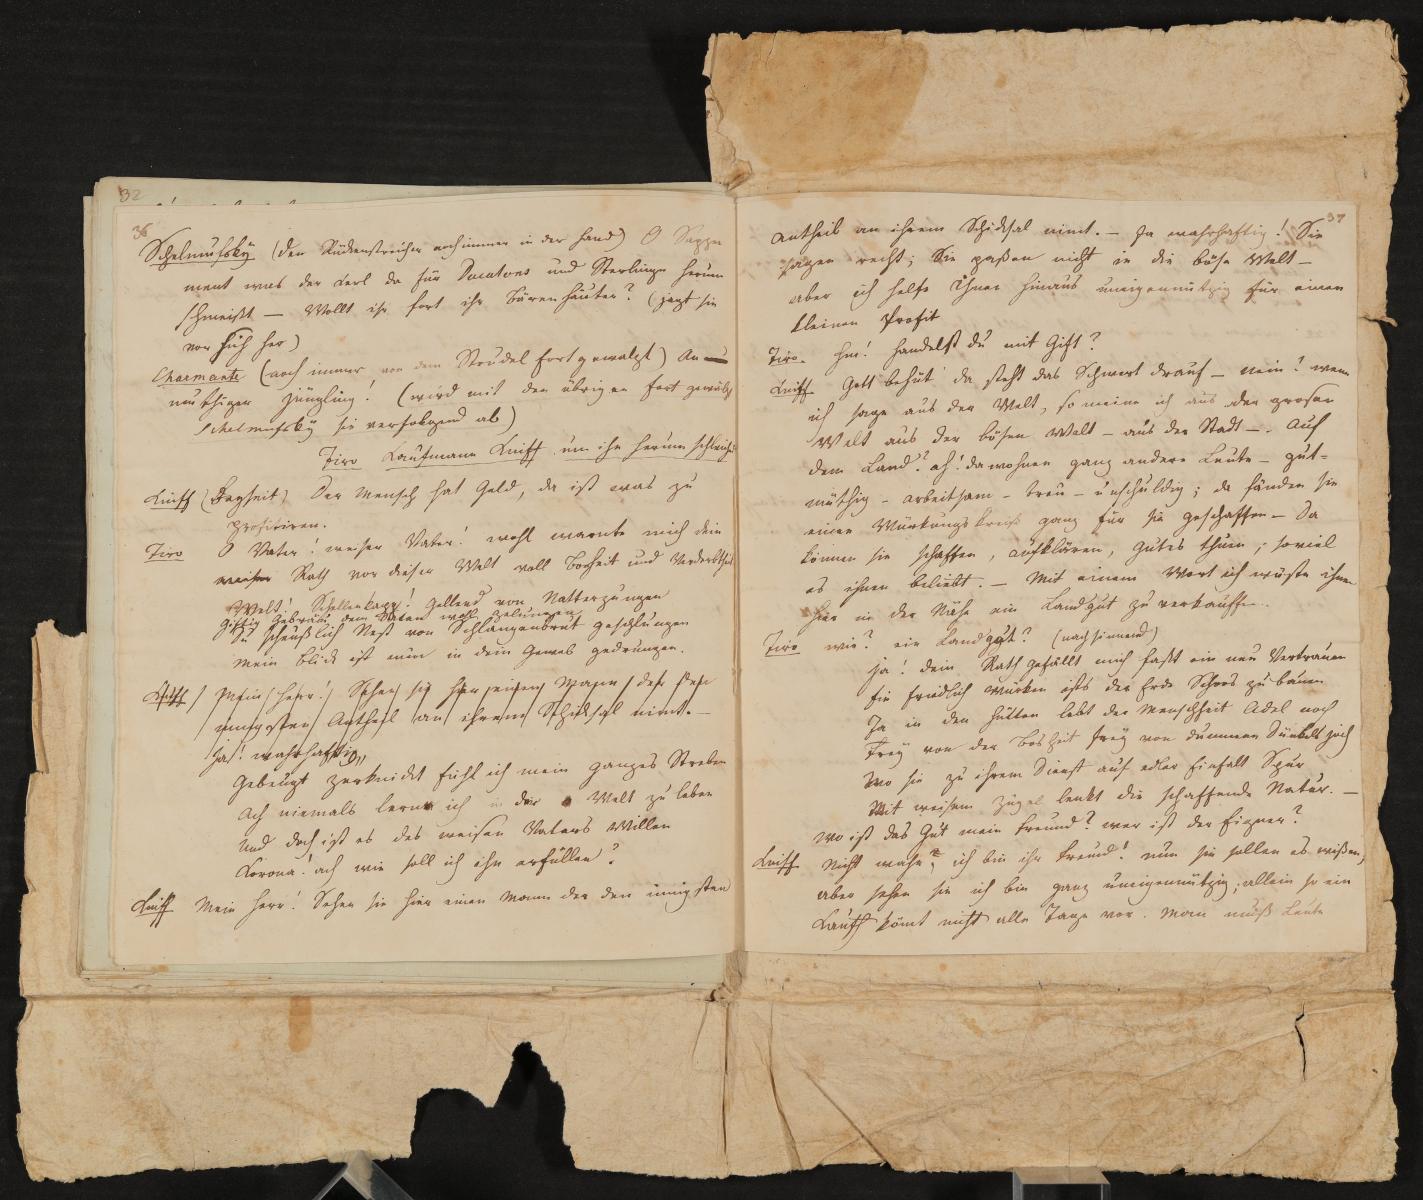 32
36
Schelmufsky (den Rückenstreicher noch immer in der Hand) O Sapper
ment was der Kerl da für Ducatons und Sterlinge herum
schmeißt — Wollt ihr fort ihr Bärenhäuter? (jagt sie
vor sich her)
Charmante (noch immer von dem Strudel fortgewalzt) An—
muthiger Jüngling! (wird mit den übrigen fort gewälzt
Schelmufsky sie verfolgend ab)
Tiro Kaufmann Kniff um ihn herum schleichend
Kniff (Beyseit) Der Mensch hat Geld, da ist was zu
profitiren.
Tiro O Vater! weiser Vater! wohl warnte mich dein
Rath vor dieser Welt voll Bosheit und Verderbtheit
Welt! Schellenkappe! Gellend von Natterzungen
giftig Gebräu, dem Satan wohl gelungen
Du scheußlich Nest von Schlangenbrut geschlungen
Mein Blick ist nun in dein Geweb gedrungen.
Kniff Mein Herr! Sehen sie hier einen Mann der den
innigsten Antheil an ihrem Schiksal nimt. —
Ja! wahrhaftig
Gebeugt zerknickt fühl ich mein ganzes Streben
Ach niemals lern ich in der Welt zu leben
Und doch ist es des weisen Vaters Willen
Korona! ach wie soll ich ihn erfüllen?
Kniff Mein Herr! Sehen sie hier einen Mann der den innigsten
37
Antheil an ihrem Schicksal nimt. — Ja wahrhaftig! Sie
sagen recht; Sie paßen nicht in die böse Welt —
aber ich helfe Ihnen hinaus uneigennützig für einen
kleinen Profit
Tiro. Hm! Handelst du mit Gift?
Kniff Gott behüt da steht das Schwert drauf — nein! wenn
ich sage aus der Welt, so meine ich aus der grosen
Welt aus der bösen Welt — aus der Stadt —. Auf
dem Land? ah! da wohnen ganz andere Leute — gut-
müthig — arbeitsam — treu — unschuldig; da fänden sie
einen Würkungskreiß ganz für sie geschaffen — Da
können sie schaffen, aufklären, gutes thun; soviel
es ihnen beliebt. — Mit einem Wort ich wüste ihnen
hier in der Nähe ein Landgut zu verkauffen.
Tiro wie? ein Landgut? (nachsinnend)
Ja! dein Rath gefällt mich faßt ein neu Vertrauen
Hie friedlich würken ists der Erde Schoos zu bauen
Ja in den Hütten lebt der Menschheit Adel noch
Frey von der Bosheit frey von dummen Dünkels Joch
Wo sie zu ihrem Dienst auf edler Einfalt Spur
Mit weisem Zügel lenkt die schaffende Natur. —
Wo ist das Gut mein Freund? wer ist der Eigner?
Kniff Nicht wahr? ich bin ihr Freund! nun sie sollen es wißen,
aber sehen sie ich bin ganz uneigennützig; allein so ein
Kauff kömt nicht alle Tage vor. Man muß Leute